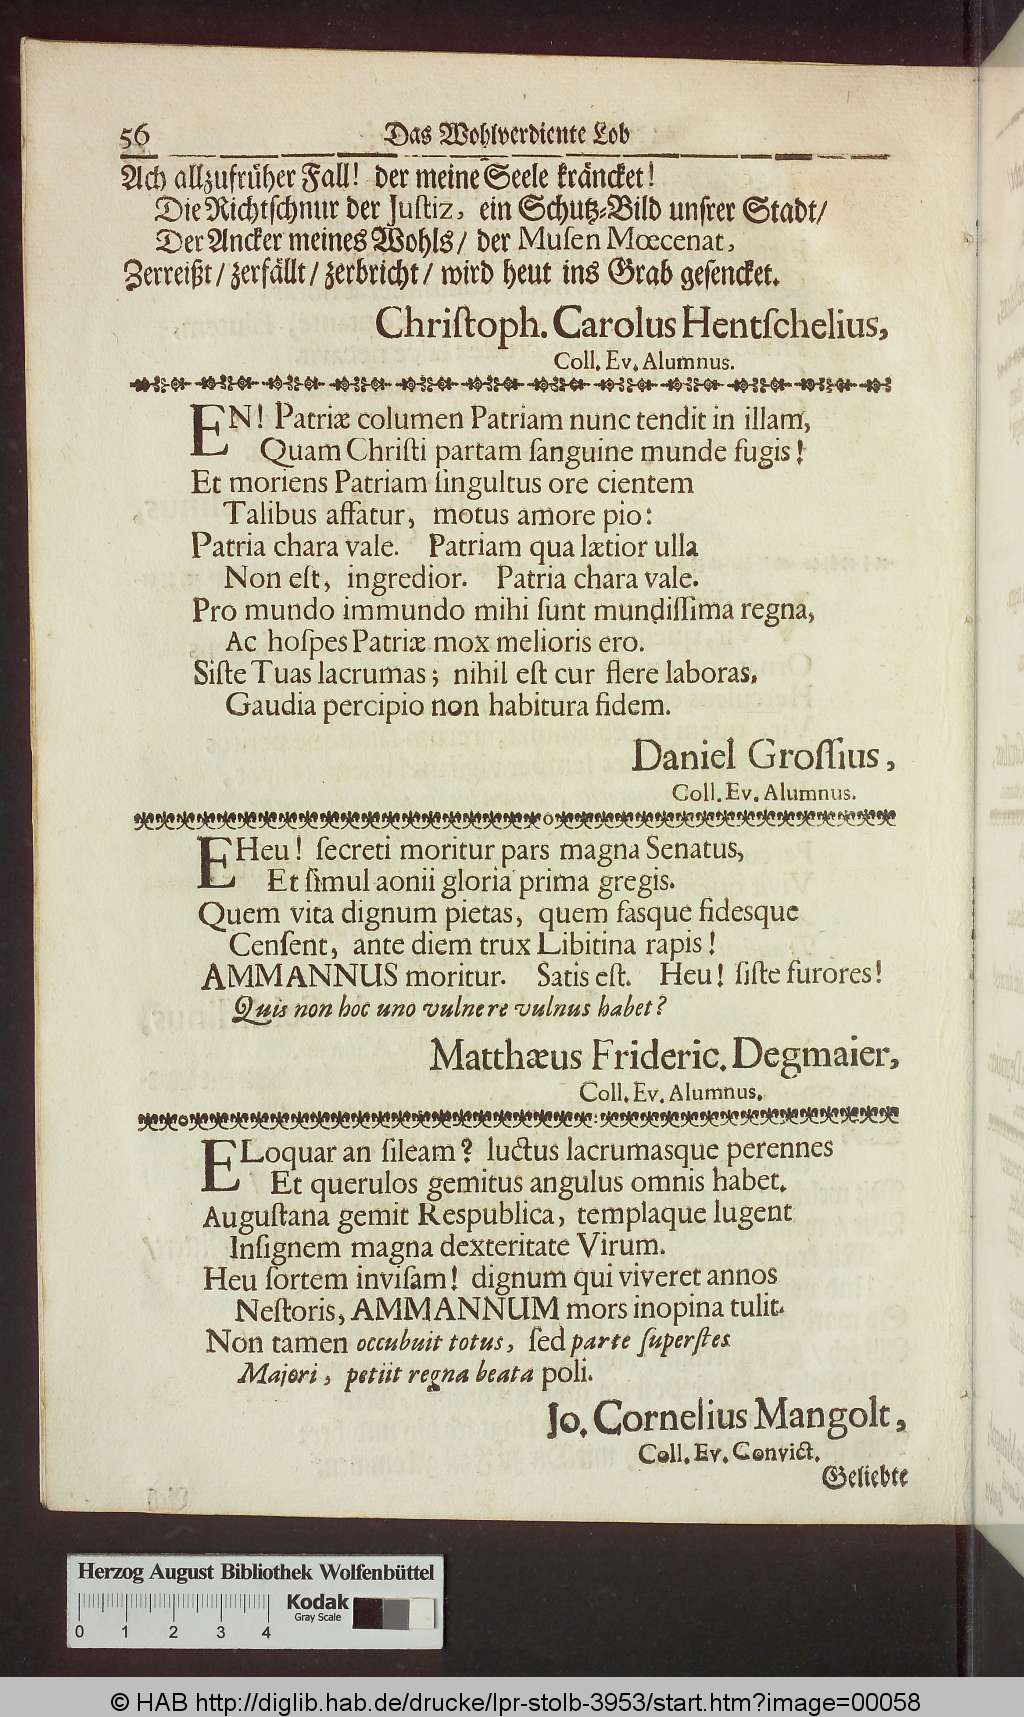 56 Das Wohlverdiente Lob
Ach allzufrüher Fall! der meine Seele kräncket!
Die Richtschnur der Juſtiz, ein Schutz-Bild unsrer Stadt/
Der Ancker meines Wohls/ der Muſen Mœcenat,
Zerreißt/ zerfällt/ zerbricht/ wird heut ins Grab gesencket.
Chriſtoph. Carolus Hentſchelius,
Coll. Ev. Alumnus.
EN! Patriæ columen Patriam nunc tendit in illam,
Quam Chriſti partam ſanguine munde fugis!
Et moriens Patriam ſingultus ore cientem
Talibus affatur, motus amore pio:
Patria chara vale. Patriam qua lætior ulla
Non eſt, ingredior. Patria chara vale.
Pro mundo immundo mihi ſunt mundiſſima regna,
Ac hoſpes Patriæ mox melioris ero.
Siſte Tuas lacrumas; nihil eſt cur flere laboras,
Gaudia percipio non habitura fidem.
Daniel Groſſius,
Coll. Ev. Alumnus.
EHeu! ſecreti moritur pars magna Senatus,
Et ſimul aonii gloria prima gregis.
Quem vita dignum pietas, quem fasque fidesque
Cenſent, ante diem trux Libitina rapis!
AMMANNUS moritur. Satis eſt. Heu! ſiſte furores!
Quis non hoc uno vulnere vulnus habet?
Matthæus Frideric. Degmaier,
Coll. Ev. Alumnus.
ELoquar an ſileam? luctus lacrumasque perennes
Et querulos gemitus angulus omnis habet.
Auguſtana gemit Respublica, templaque lugent
Inſignem magna dexteritate Virum.
Heu ſortem inviſam! dignum qui viveret annos
Neſtoris, AMMANNUM mors inopina tulit.
Non tamen occubuit totus, ſed parte ſuperſtes
Majori, petiit regna beata poli.
Jo. Cornelius Mangolt,
Coll. Ev. Convict.
Geliebte
Herzog August Bibliothek Wolfenbüttel
Kodak
Gray Scale
0 1 2 3 4
© HAB http://diglib.hab.de/drucke/lpr-stolb-3953/start.htm?image=00058